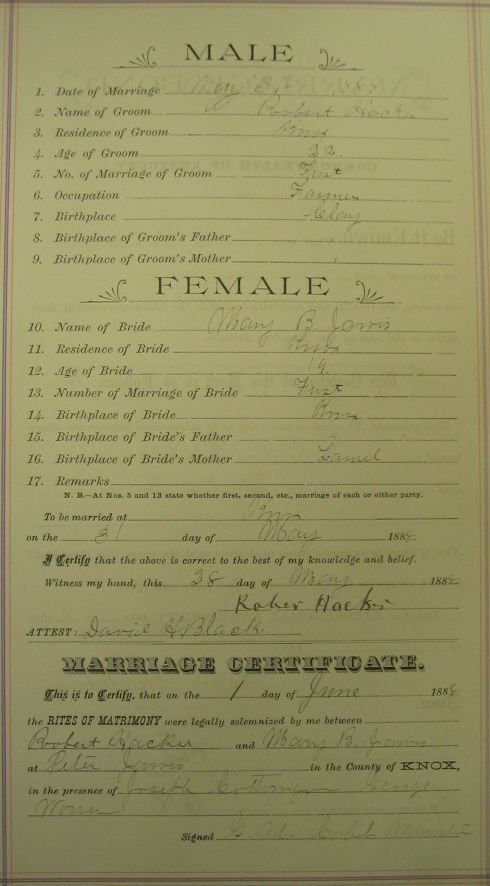 MALE
1. Date of Marriage May 31, 1888
2. Name of Groom Robert Hacker
3. Residence of Groom Knox
4. Age of Groom 22.
5. No. of Marriage of Groom First
6. Occupation Farmer
7. Birthplace Clay
8. Birthplace of Groom's Father
9. Birthplace of Groom's Mother
FEMALE
10. Name of Bride Mary B. Jarvis
11. Residence of Bride Knox
12. Age of Bride 19.
13. Number of Marriage of Bride First
14. Birthplace of Bride Knox
15. Birthplace of Bride's Father
16. Birthplace of Bride's Mother Laurel
17. Remarks
N. B.—At Nos. 5 and 13 state whether first, second, etc., marriage of each or either party.
To be married at Knox
on the 31 day of May 1888
I Certify that the above is correct to the best of my knowledge and belief.
Witness my hand, this 28 day of May 1888
Rober Hacker
ATTEST: David H Black
MARRIAGE CERTIFICATE.
This is to Certify, that on the 1 day of June 1888
the RITES OF MATRIMONY were legally solemnized by me between
Roobert Hacker and Mary B. Jarvis
at Peter Jarvis in the County of KNOX,
in the presence of Joseph George
Warren
Signed